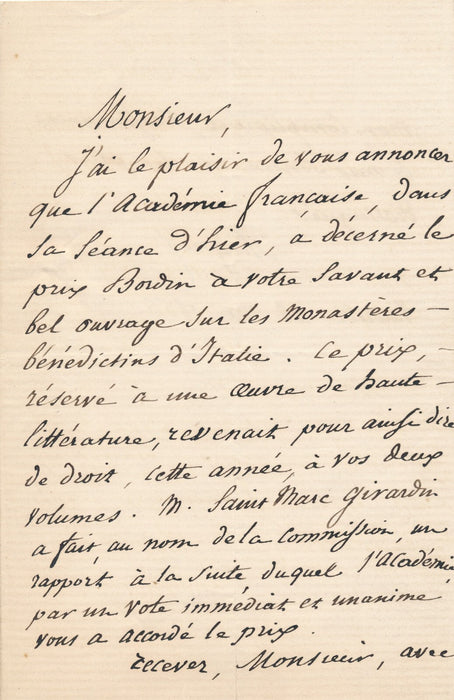 Monsieur,
J'ai le plaisir de vous annoncer
que l'Académie française, dans
sa séance d'hier, a décerné le
prix Bordin à votre savant et
bel ouvrage sur les Monastères —
bénédictins d'Italie. Ce prix, —
réservé à une Œuvre de haute —
littérature, revenait pour ainsi dire
de droit, cette année, à vos deux
volumes. M. Saint Marc Girardin
a fait, au nom de la Commission, un
rapport à la suite duquel l'Académie
par un vote immédiat et unanime
vous a accordé le prix.
Recevez, Monsieur, avec